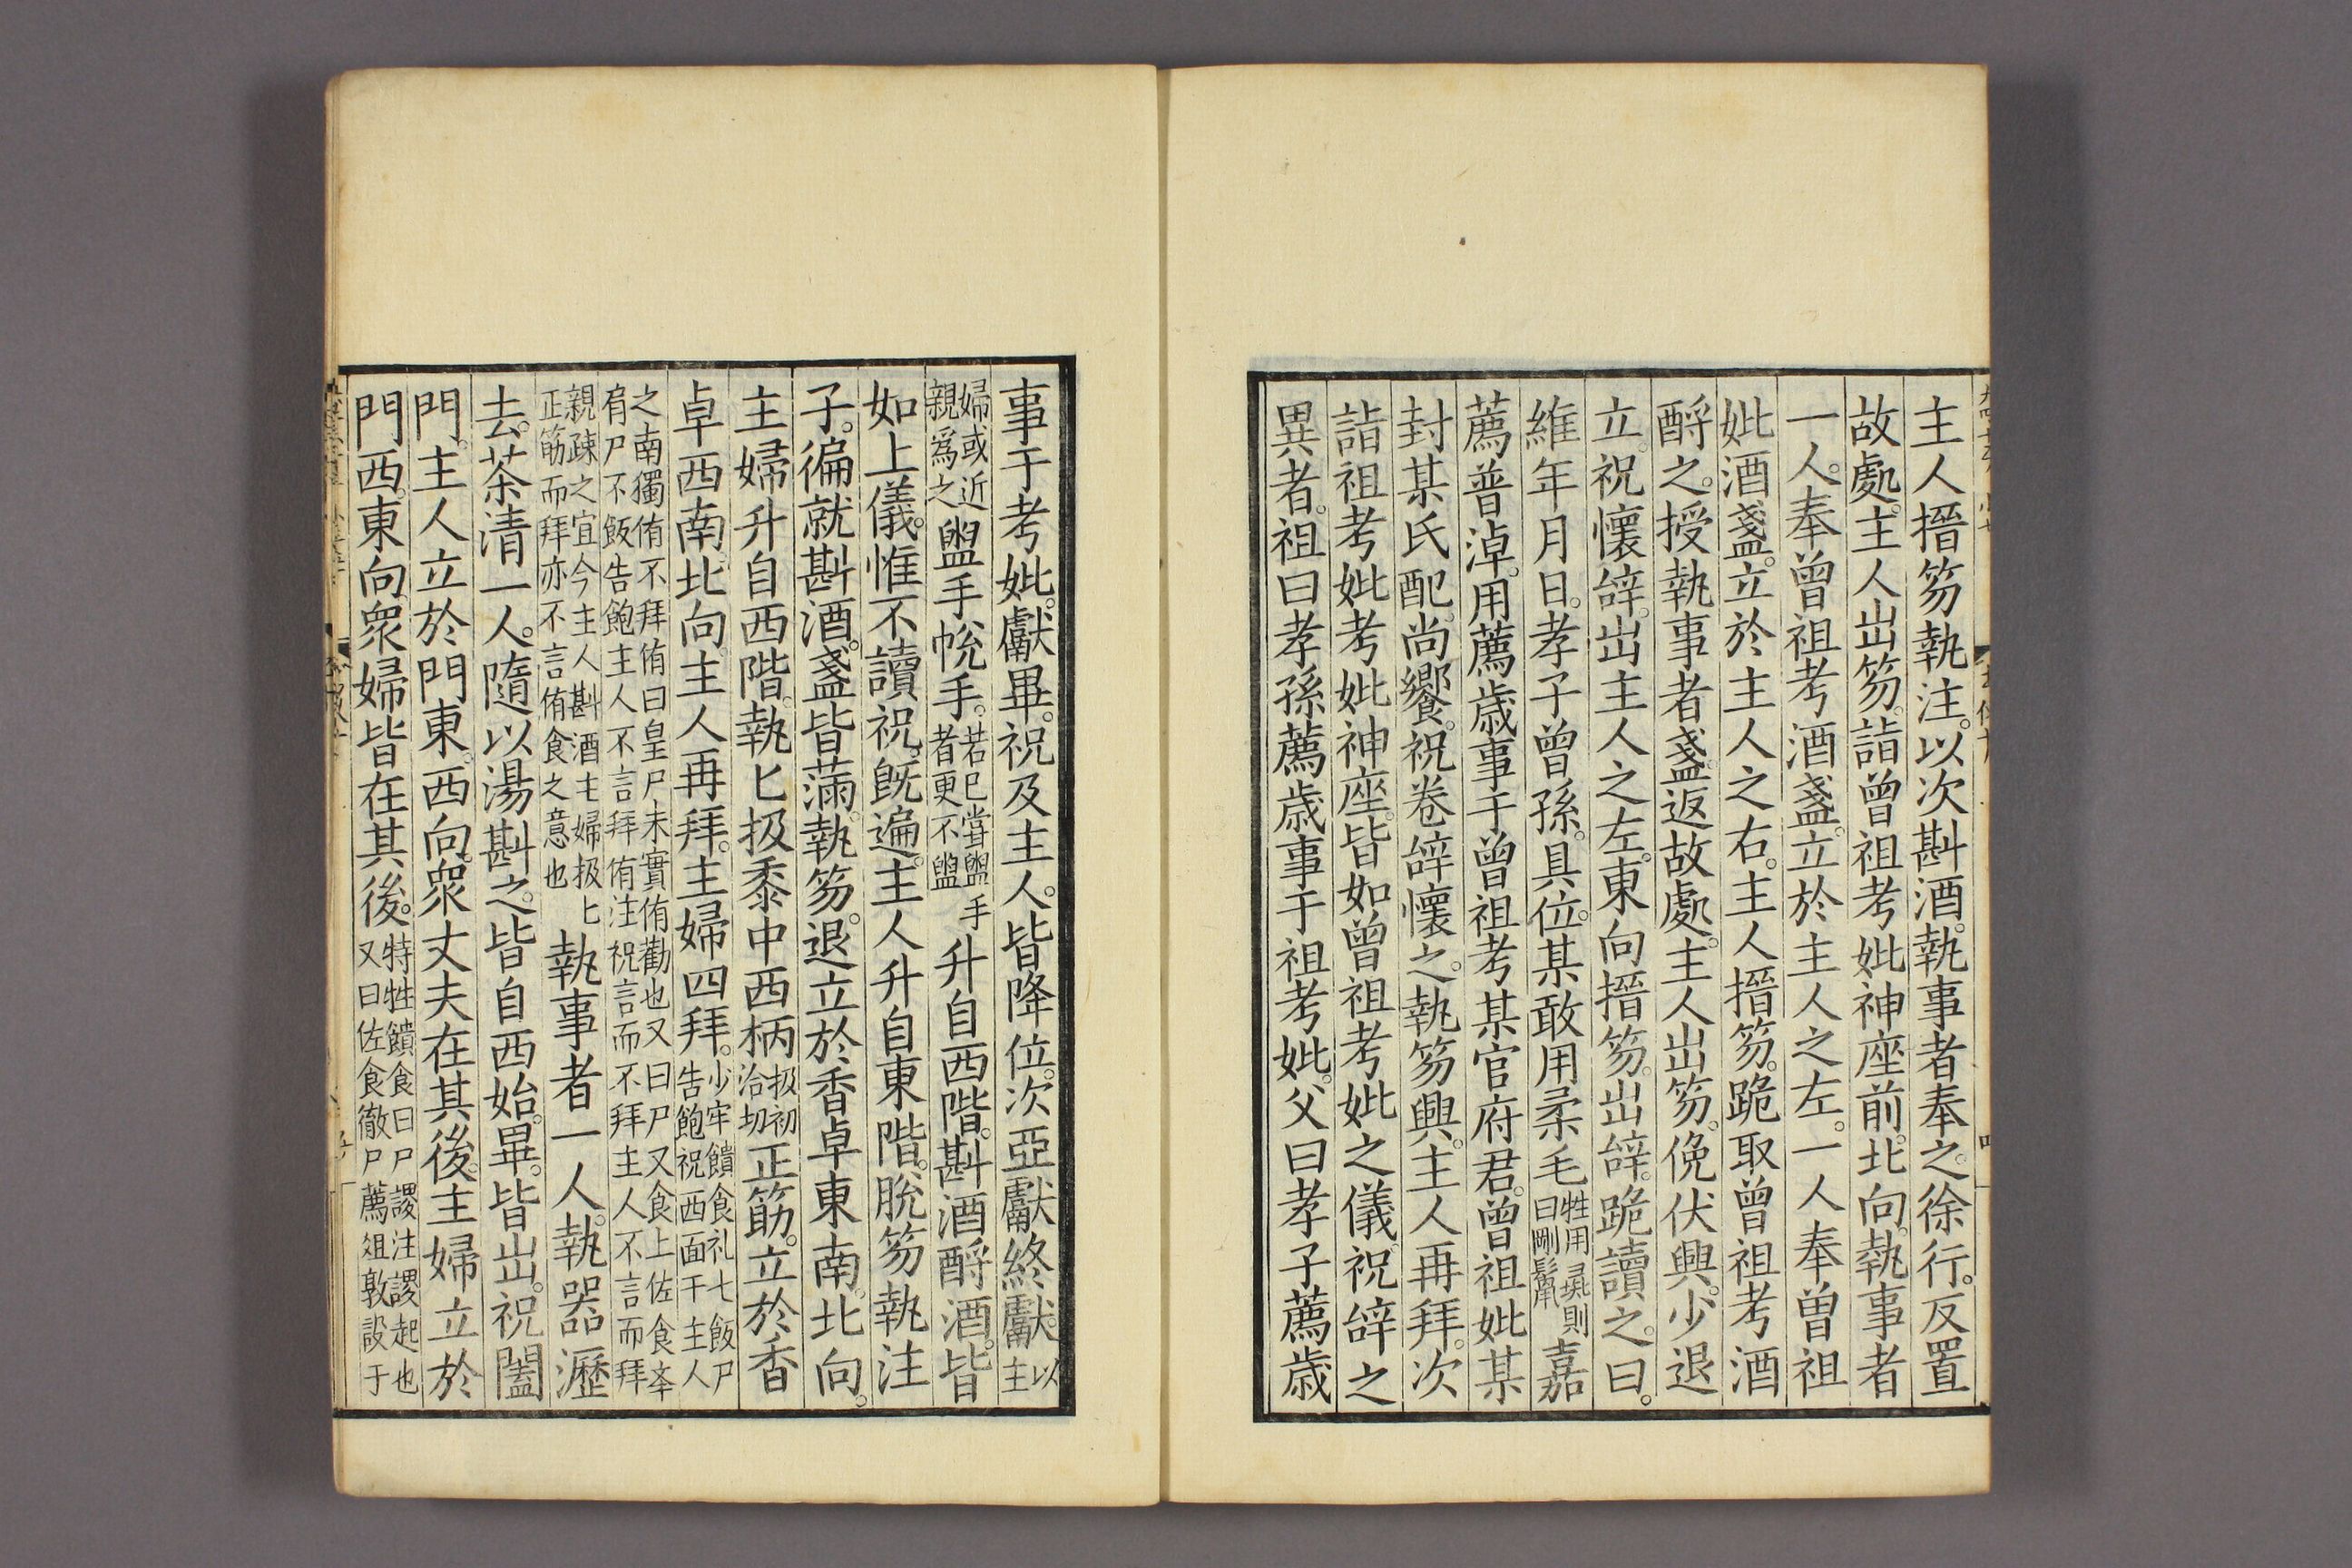 主人搢笏執注。以次斟酒。執事者奉之。徐行。反置
故處。主人出笏。詣曾祖考妣神座前。北向。執事者
一人。奉曾祖考酒盞。立於主人之左。一人奉曾祖
妣酒盞。立於主人之右。主人搢笏。跪取曾祖考酒
酹之。授執事者盞。返故處。主人出笏。俛伏興。少退
立。祝懷辝。出主人之左。東向搢笏。出辝。跪讀之。曰。
維年月日。孝子曾孫。具位。某敢用柔毛牲用彘則曰剛鬛嘉
薦普淖。用薦歳事于曾祖考某官府君。曾祖妣某
封某氏配。尚饗。祝卷辝懷之。執笏興。主人再拜。次
詣祖考妣考妣神座。皆如曾祖考妣之儀。祝辝之
異者。祖曰孝孫薦歳事于祖考妣。父曰孝子薦歳
事于考妣。獻畢。祝及主人。皆降位。次亞獻終獻。以主
婦或近親爲之盥手帨手。若已嘗盥手者更不盥升自西階。斟酒酹酒。皆
如上儀。惟不讀祝。旣遍。主人升自東階。脫笏執注
子。徧就斟酒。盞皆滿。執笏。退立於香卓東南。北向。
主婦升自西階。執匕扱黍中西柄扱初洽切正筯。立於香
卓西南北向。主人再拜。主婦四拜。少牢饋食礼七飯尸告飽祝西面于主人
之南獨侑不拜侑曰皇尸未實侑勸也又曰尸又食上佐食本肩尸不飯告飽主人不言拜侑注祝言而不拜主人不言而拜
親疎之宜今主人斟酒主婦扱匕正筯而拜亦不言侑食之意也執事者一人。執器瀝
去。茶清一人。隨以湯斟之。皆自西始。畢。皆出。祝闔
門。主人立於門東。西向。衆丈夫在其後。主婦立於
門西。東向衆婦皆在其後。特牲饋食曰尸謖注謖起也又曰佐食徹尸薦俎敦設于